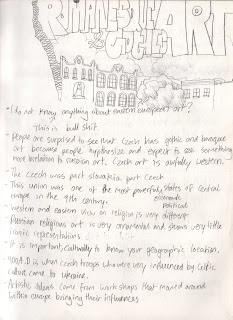 ROMANESQUE ART
& GOTHIC
• I do not know anything about eastern european art?
This is bull shit
• People are surprised to see that Czech has gothic and baroque
art because people hypothesize and expect to see something
more in relation to russian art. Czech art is awfully western.
• The Czech was part slovakia part Czech
• This union was one of the most powerful states of central
europe in the 9th century. economic
political
• western and eastern view on religion is very different
• Russian religious art is very ornamental and shows very little
iconic representations
• It is important, culturally to know your geographic location.
• 400 A.D is when czech troops who were very influenced by Celtic
culture came to Ukraine.
• Artistic talent came from workshops that moved around
within europe bringing their influences